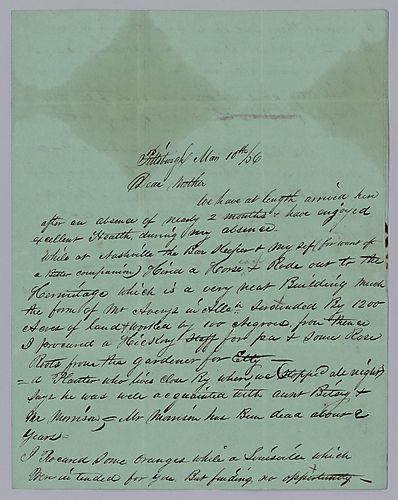 Pittsburgh Mar 10th /56
Dear Mother
We have at length arrived here
after an absence of nearly 2 months & have enjoyed
excellent Health during my absence.
While at Nashville the Bar Keeper & my self (for want of
a better companion) Hired each a Horse & Rode out to the
Hermitage which is a very neat Building much
the form of Mr Averys in Alleh. Surounded By 1200
Acres of land & worked by 100 Negroes, from thence
I procured a Hickory Staff for pa & some Rose
Roots from the gardener for Etty —
= A Planter who lives close By where we stopped all night
says he was well acquainted with aunt Betsy &
Mr Morrison, = Mr Morrison has Been dead about 2
Years =
I Procured some Oranges while a Louisville which
Were intended for you But finding no opportunity —